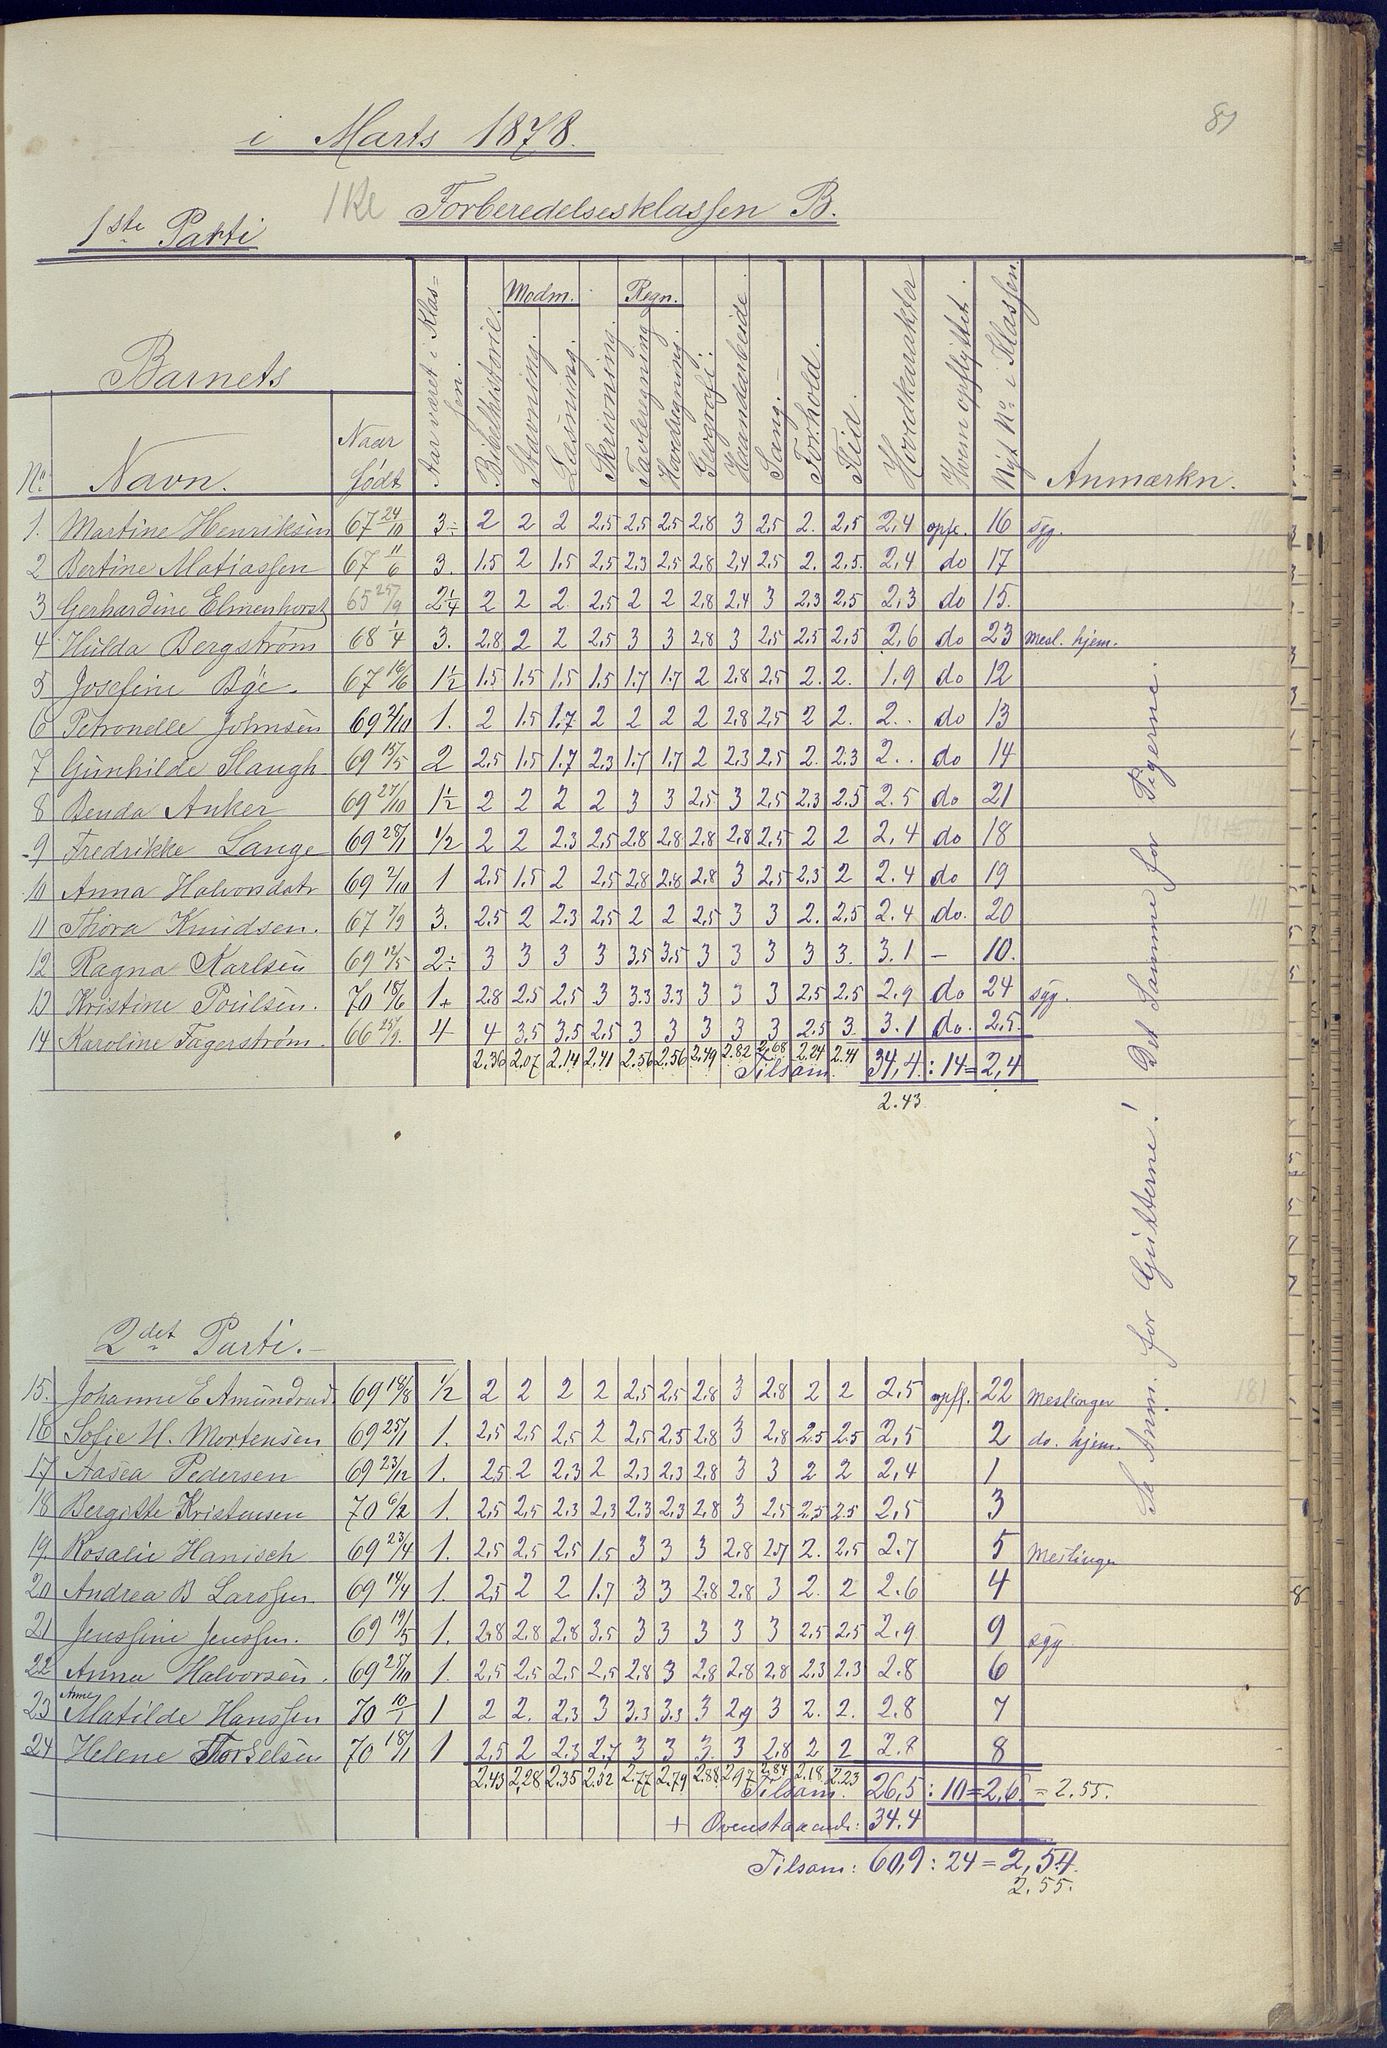 81
i Marts 1878.
1 Kl Forberedelsesklassen B.
1ste Parti
Barnets
No. Navn. Naar født Aar været i Klassen. Bibelhistorie. Modm. Stavning. Læsning. Skrivning. Regn. Tavleregning Hovedregning. Geografi. Haandarbeide. Sang. Forhold. Flid. Hovedkarakter Hvem opflyttet. Nyt No. i Klassen. Anmærkn.
1. Martine Henriksen 67 24/10 3÷ 2 2 2 2,5 2,5 2,5 2,8 3 2,5 2. 2,5 2,4 opfl. 16 syg.
2 Bertine Matiassen 67 11/6 3. 1.5 2 1.5 2,5 2.3 2,5 2,8 2,4 2,5 2. 2,5. 2,4 do 17
3 Gerhardine Elmenhorst 65 25/9 2 1/4 2 2 2. 2,5 2 2 2,8 2,4 3 2,3 2,5 2,3 do 15.
4 Hulda Bergstrøm 68 1/4 3. 2,8 2 2 2,5 3 3 2,8 3 2,5 2,5 2,5 2,6 do 23 Mesl. hjem.
5 Josefine Bye. 67 16/6 1 1/2 1.5 1.5 1.5 1.5 1.7 1.7 2 2,8 2,5 2. 2. 1.9 do 12
6 Petronelle Johnsen 69 2/10 1. 2 1.5 1.7 2 2 2 2 2,8 2,5 2 2. 2. . do 13
7 Gunhilde Slaugh 69 15/5 2 2.5 1.5 1.7 2.3 1.7 1.7 2 2.3 2,5 2. 2.3 2. . do 14
8 Benda Anker 69 27/10 1 1/2 2 2 2 2 3 3 2,5 3 2,5 2,3 2.5 2.5 do 21
9 Fredrikke Lange 69 28/1 1/2 2 2 2.3 2,5 2.8 2,8 2,8 2,8 2,5 2 2 2,4 do 18
10 Anna Halvorsdatr 69 2/10 1 2,5 1.5 2 2,5 2,8 2.8 2,8 3 2,5 2,3 2 2.4 do 19
11 Thora Knudsen. 67 7/9 3. 2.5 2 2.3 2,5 2 2 2,5 3 3 2. 2,5 2.4 do. 20
12 Ragna Karlsen 69 12/5 2÷ 3 3 3 3 3,5 3,5 3 3 3 3 3. 3.1 – 10.
13 Kristine Poulsen. 70 18/6 1+ 2.8 2,5 2,5 3 3.3 3.3 3 3 3 2,5 2,5 2,9 do 24 syg.
14 Karoline Fagerstrøm. 66 25/9. 4 4 3,5 3,5 2.5 3 3 3 3 3 2.5 3. 3.1 do. 25.
2.36 2.07 2.14 2.41 2.56 2.56 2.49 2.82 2.68 2.24 2.41
Tilsam. 34,4 : 14 = 2,4
2.43
2det Parti.
15. Johanne E Amundrud 69 18/8 1/2 2 2 2 2 2,5 2,5 2,8 3 2,8 2 2 2,5 opfl. 22 Meslinger
16 Sofie H. Mortensen 69 25/1 1. 2,5 2,5 2,5 2 2,5 2,5 2,8 3 2,8 2.5 2.5 2,5 2 do. hjem.
17 Aasea Pedersen 69 23/12 1. 2,5 2 2,3 2 2,3 2,3 2,8 3 3 2 2 2,4 1
18 Bergitte Kristensen 70 6/2 1. 2,5 2,5 2.3 2,3 2.3 2,3 2,8 3 2,5 2,5 2.5 2,5 3
19. Rosalie Hanisch 69 23/4 1. 2,5 2,5 2,5 1.5 3 3 3 2.8 2.7 2. 2,5 2.7 5 Meslinger
20 Andrea B Larssen 69 14/4 1. 2,5 2 2 1.7 3 3 2,8 2,8 3 2. 2 2.6 4
21 Jenssine Jenssen. 69 19/5 1. 2.8 2,8 2,8 3,5 3 3 3 3 3 2,5 2,5 2,9. 9 syg
22 Anna Halvorsen. 69 25/10 1. 2,5 2,5 2,5 2,5 2,8 3 2,8 2,8 2,8 2.3 2.3 2.8 6
23 Anne Matilde Hanssen 70 10/1 1 2 2. 2,3 3 3.3 3.3 3 2,9 3 2. 2. 2.8 7
24 Helene Torkelsen 70 18/1 1 2,5 2 2.3 2,7 3 3 3. 3 2.8 2 2 2.8 8
2.43 2,28 2.35 2.32 2.77 2.79 2.88 2.97 2.84 2.18 2.23
Tilsam. 26,5 : 10 = 2,6 = 2.55.
+ Ovenstaaende: 34.4
Tilsam: 60,9 : 24 = 2,54.
2.55.
Se Anm. for Gutterne! Det Samme for Pigerne.